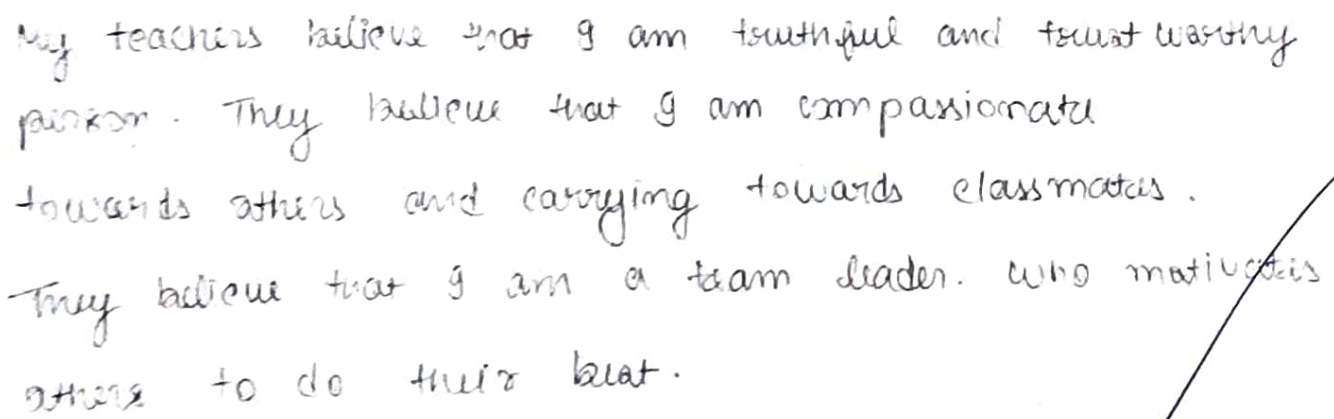 My teachers believe that I am truthful and trust worthy
person. They believe that I am compassionate
towards others and carrying towards classmates.
They believe that I am a team leader. who motivates
others to do their best.